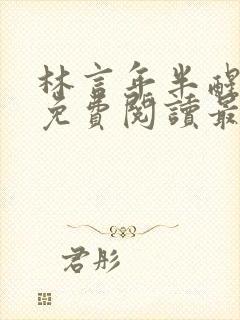 林言年半醒
免費閱讀最
君彤